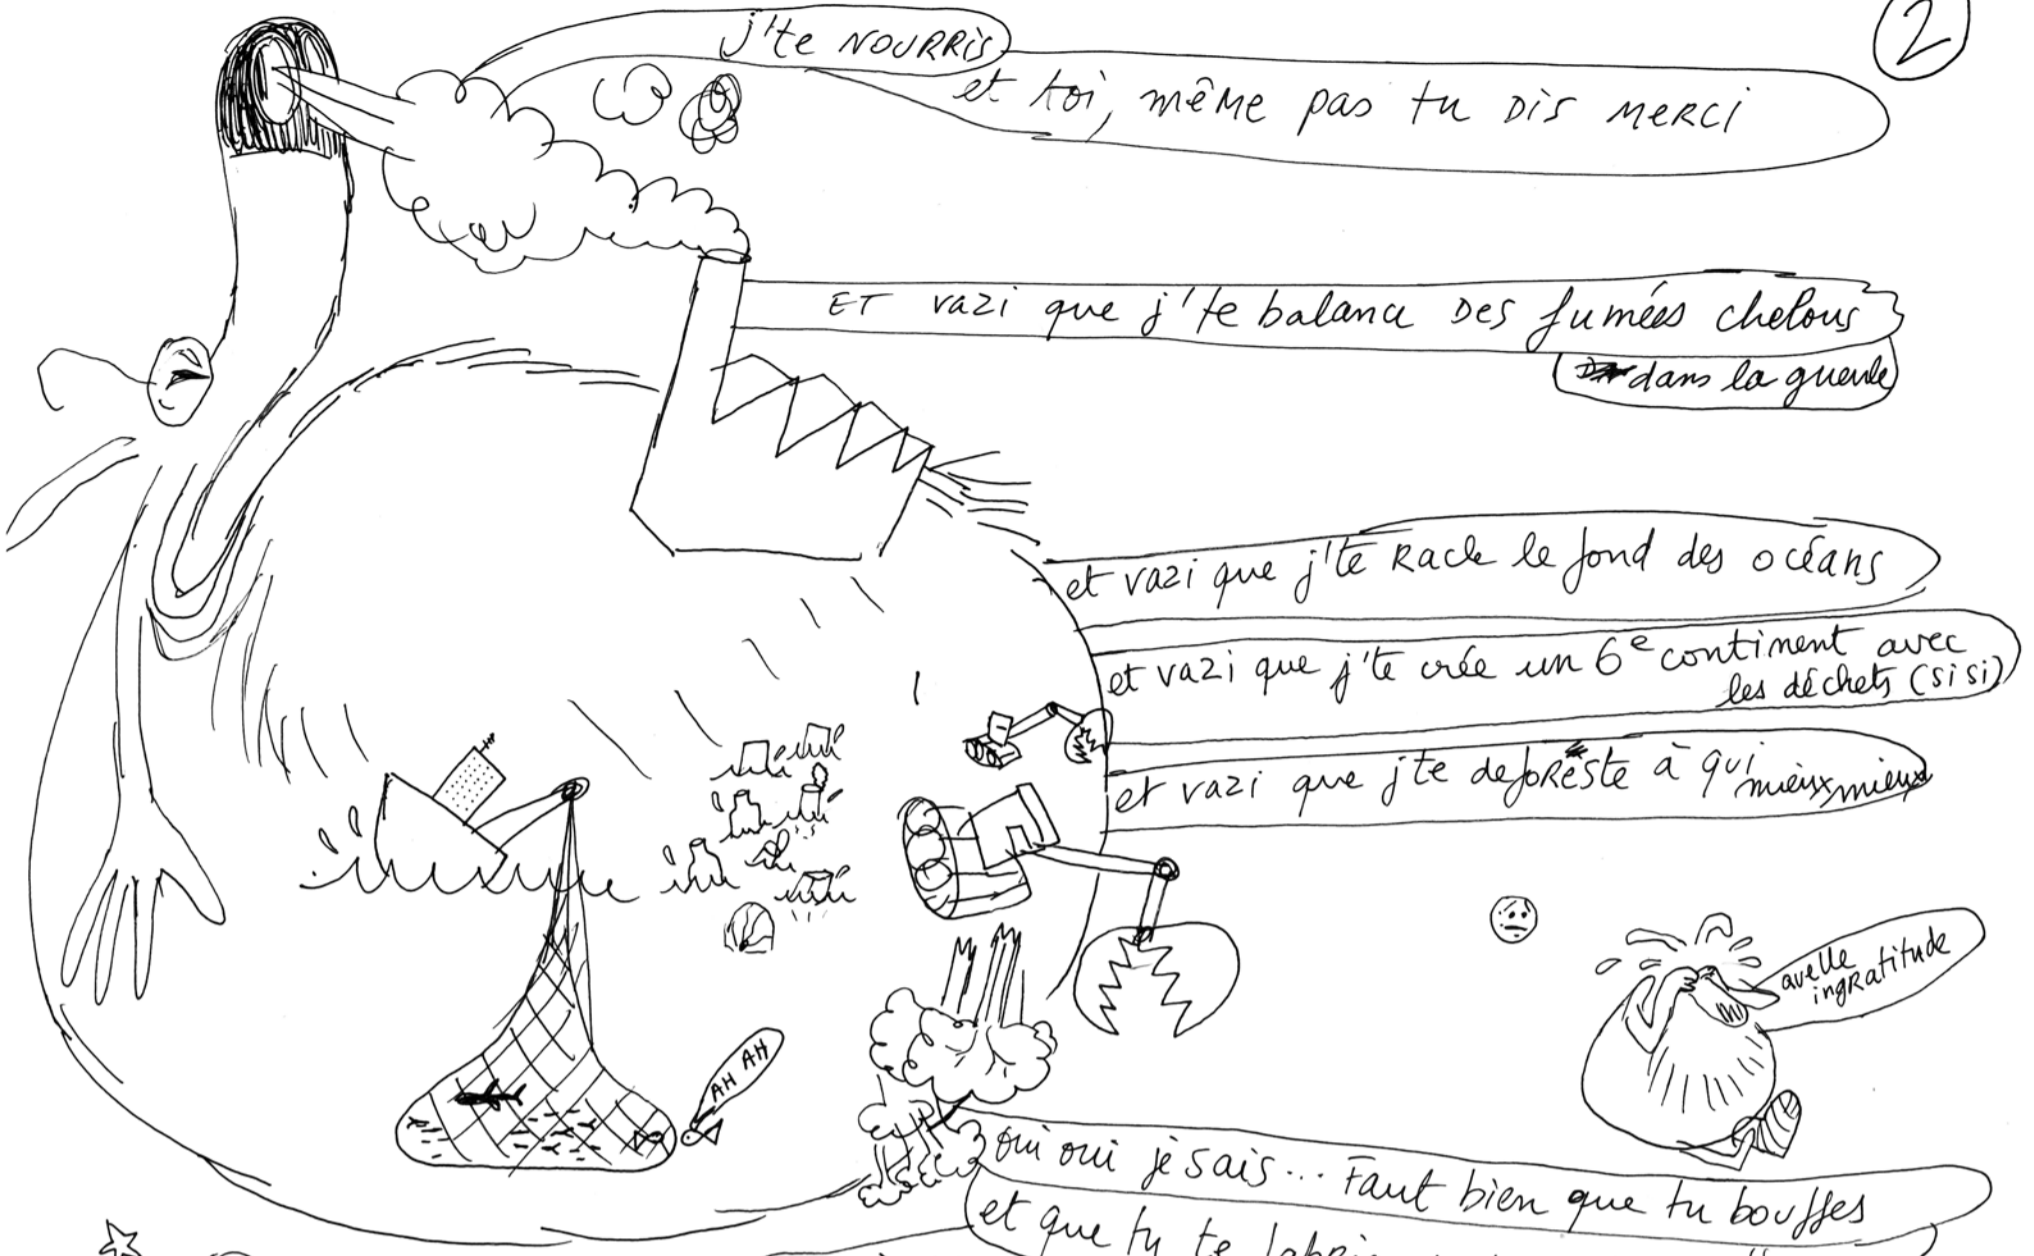 2
j'te NOURRIS
et toi, même pas tu DIS MERCI
ET vazi que j'te balance Des fumées chelous
dans la gueule
et vazi que j'te Racle le fond des océans
et vazi que j'te crée un 6e continent avec
les déchets (si si)
et vazi que j'te deforeste à qui
mieux mieux
avelle
ingratitude
AH AH
oui oui je sais... Faut bien que tu bouffes
et que tu te